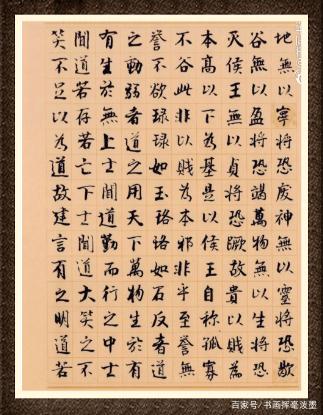 地無以寧將恐廢神無以靈將恐歇
谷無以盈將恐竭萬物無以生將恐
灭侯王無以貞將恐蹶故貴以賤為
本高以下為基是以侯王自稱孤寡
不谷此非以賤為本邪非乎至譽無
譽不欲琭琭如玉珞珞如石反者道
之動弱者道之用天下萬物生於有
有生於無上士聞道勤而行之中士
聞道若存若亡下士聞道大笑之不
笑不足以為道故建言有之明道若
百家号/书画挥毫泼墨